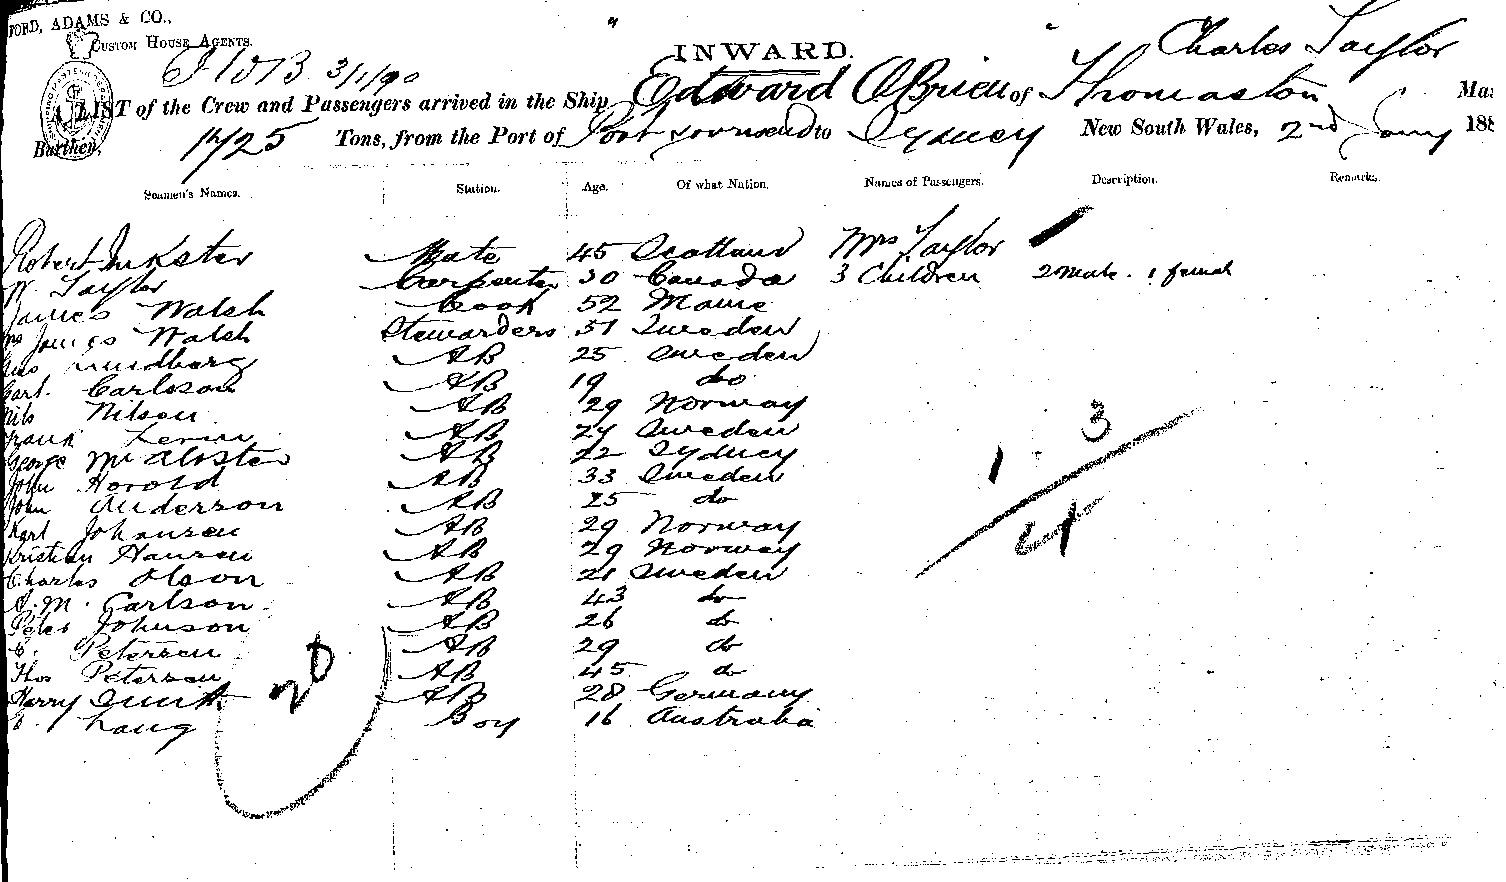 FORD, ADAMS & CO.,
CUSTOM HOUSE AGENTS.
3/1/90
INWARD.
Charles Taylor
A LIST of the Crew and Passengers arrived in the Ship Edward O'Brien of Thomaston
Burthen, 1725 Tons, from the Port of Port Townsend to Sydney New South Wales, 2nd Jany 188
Seamen's Names. Station. Age. Of what Nation. Names of Passengers. Description. Remarks.
Robert Inkster Mate 45 Scotland Mrs Taylor
W Taylor Carpenter 30 Canada 3 Children 2 male. 1 female
James Walsh Cook 52 Maine
Mrs James Walsh Stewardess 51 Sweden
Gus Lundberg AB 25 Sweden
Carl. Carlsson AB 19 do
Nils Nilson AB 29 Norway
Frank AB 24 Sweden
George AB 22 Sydney
John Horold AB 33 Sweden
John Anderson AB 25 do
Karl Johansen AB 29 Norway
Kristian Hansen AB 29 Norway
Charles Olson AB 21 Sweden
A. M. Carlson AB 43 do
Peter Johnson AB 26 do
C. Petersen AB 29 do
Thos Petersen AB 45 do
Harry AB 28 Germany
Boy 16 Australia
20
1 3
4